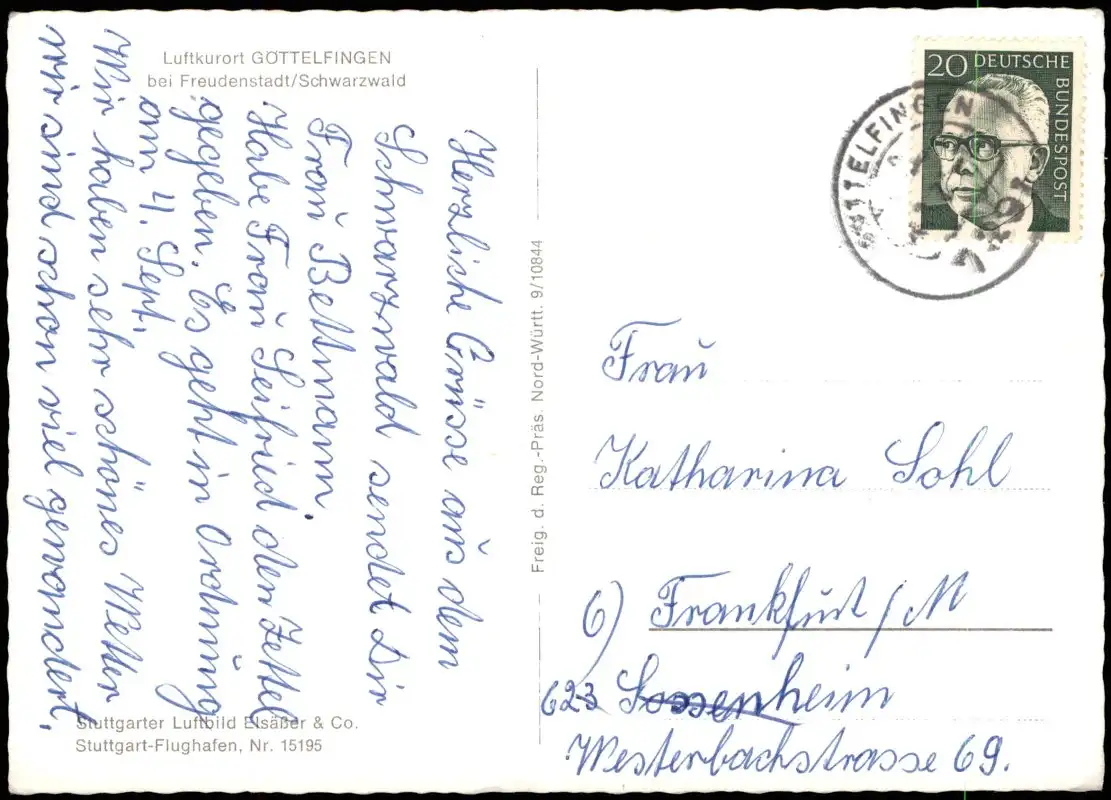 Luftkurort GÖTTELFINGEN
bei Freudenstadt/Schwarzwald
Herzliche Grüsse aus dem
Schwarzwald sendet Dir
Frau Bettmann.
Habe Frau Seifried den Zettel
gegeben. Es geht in Ordnung
am 4. Sept.
Wir haben sehr schönes Wetter
wir sind schon viel gewandert.
Stuttgarter Luftbild Elsäßer & Co.
Stuttgart-Flughafen, Nr. 15195
Freig. d. Reg.-Präs. Nord-Württ. 9/10844
20 DEUTSCHE
BUNDESPOST
GÖTTELFINGEN
Frau
Katharina Sohl
6) Frankfurt / M
623 Sossenheim
Westerbachstrasse 69.